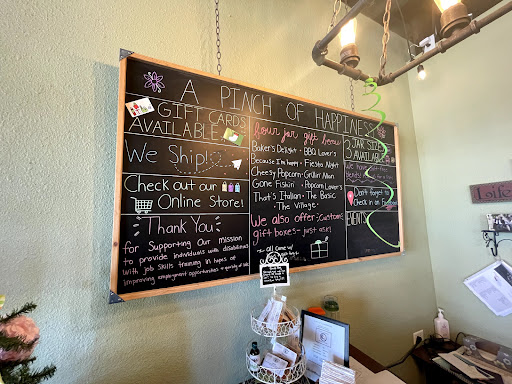 A PINCH OF HAPPINESS
GIFT CARDS
AVAILABLE
We Ship!
Check out our
Online Store!
Thank You
for Supporting Our mission
to provide individuals with disabilities
with job skills training in hopes of
improving employment opportunities & quality of life
four jar gift boxes
Baker's Delight · BBQ Lover's
Because I'm happy · Fiesta Night
Cheesy Popcorn · Grillin' Man
Gone Fishin' · Popcorn Lover's
That's Italian · The Basic
· The Village ·
We also offer: Custom
gift boxes - just ask!
3 JAR SIZES
AVAILABLE
Don't forget to
Check in on
EVENTS
Life